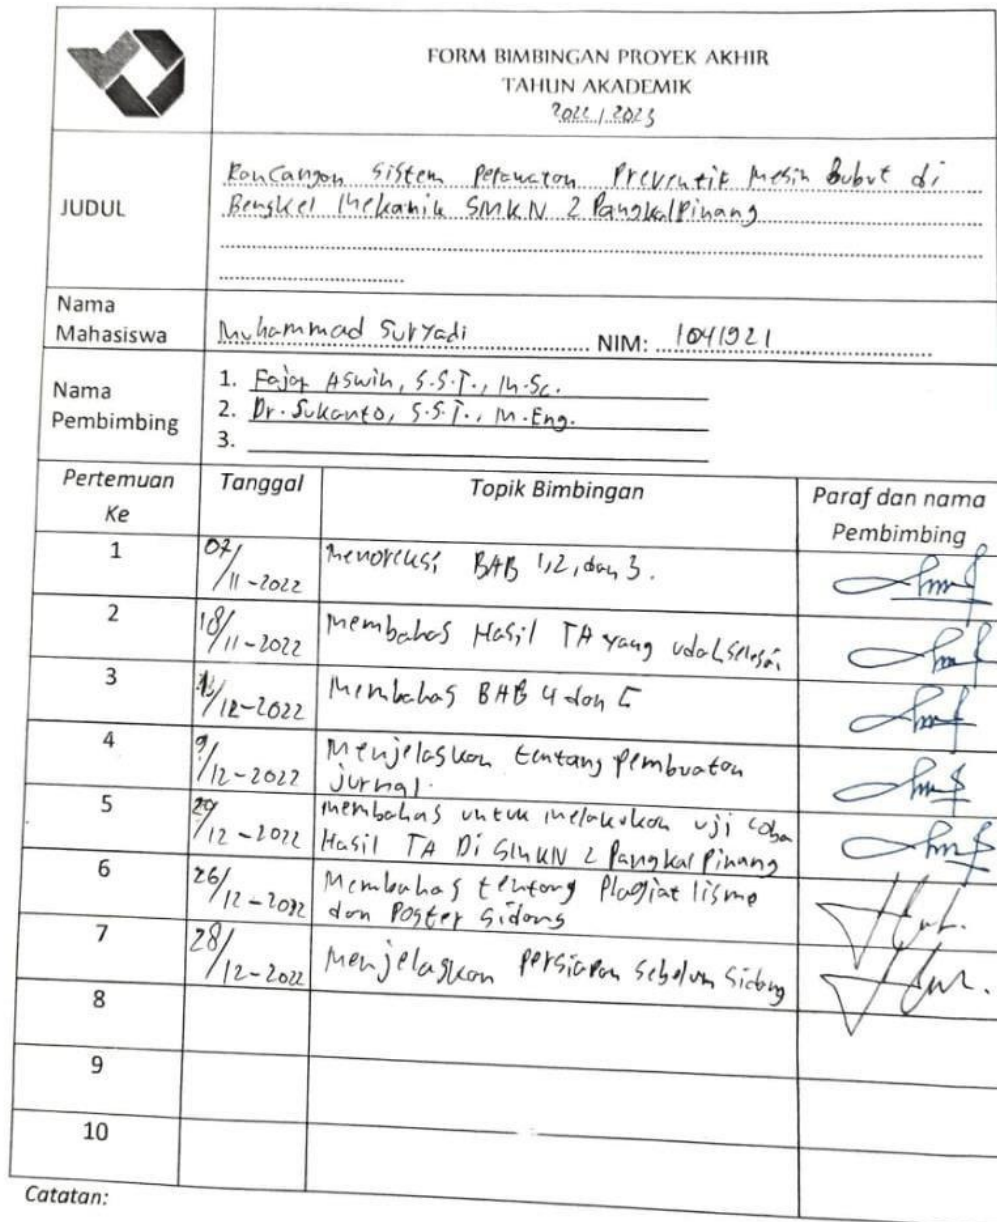 FORM BIMBINGAN PROYEK AKHIR
TAHUN AKADEMIK
2022 / 2023
JUDUL
Rancangan Sistem Perawatan Preventif Mesin Bubut di
Bengkel Mekanik SMKN 2 PangkalPinang
Nama
Mahasiswa
Muhammad Suryadi NIM: 1041921
Nama
Pembimbing
1. Fajar Aswin, S.S.T., M.Sc.
2. Dr. Sukanto, S.S.T., M.Eng.
3.
Pertemuan
Ke
Tanggal
Topik Bimbingan
Paraf dan nama
Pembimbing
1 07/11-2022 BAB 1,2, dan 3.
2 18/11-2022 Membahas Hasil TA yang udah selesai
3 /12-2022 Membahas BAB 4 dan 5
4 9/12-2022 Menjelaskan tentang pembuatan
jurnal.
5 /12-2022 membahas untuk melakukan uji coba
Hasil TA Di SMKN 2 Pangkal Pinang
6 26/12-2022 Membahas tentang Plagiat lisme
dan Poster Sidang
7 28/12-2022 Menjelaskan persiapan sebelum Sidang
8
9
10
Catatan: